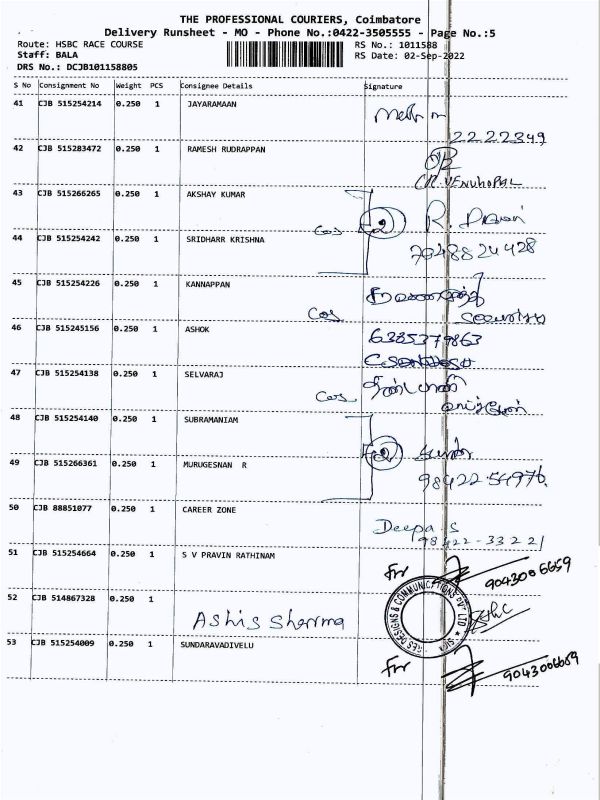 THE PROFESSIONAL COURIERS, Coimbatore
Delivery Runsheet - MO - Phone No.:0422-3505555 - Page No.:5
Route: HSBC RACE COURSE RS No.: 1011588
Staff: BALA RS Date: 02-Sep-2022
DRS No.: DCJB101158805
S No Consignment No Weight PCS Consignee Details Signature
41 CJB 515254214 0.250 1 JAYARAMAAN
2222349
42 CJB 515283472 0.250 1 RAMESH RUDRAPPAN
VENUHOPAL
43 CJB 515266265 0.250 1 AKSHAY KUMAR
R.
44 CJB 515254242 0.250 1 SRIDHARR KRISHNA
7048824428
45 CJB 515254226 0.250 1 KANNAPPAN
46 CJB 515245156 0.250 1 ASHOK
6385379863
47 CJB 515254138 0.250 1 SELVARAJ
48 CJB 515254140 0.250 1 SUBRAMANIAM
49 CJB 515266361 0.250 1 MURUGESNAN R
98422-54976
50 CJB 88851077 0.250 1 CAREER ZONE
Deepa S
98422-33221
51 CJB 515254664 0.250 1 S V PRAVIN RATHINAM
for 9043006659
52 CJB 514867328 0.250 1 Ashis Sharma
DESIGNS & COMMUNICATIONS PVT LTD
53 CJB 515254009 0.250 1 SUNDARAVADIVELU
for 9043006659